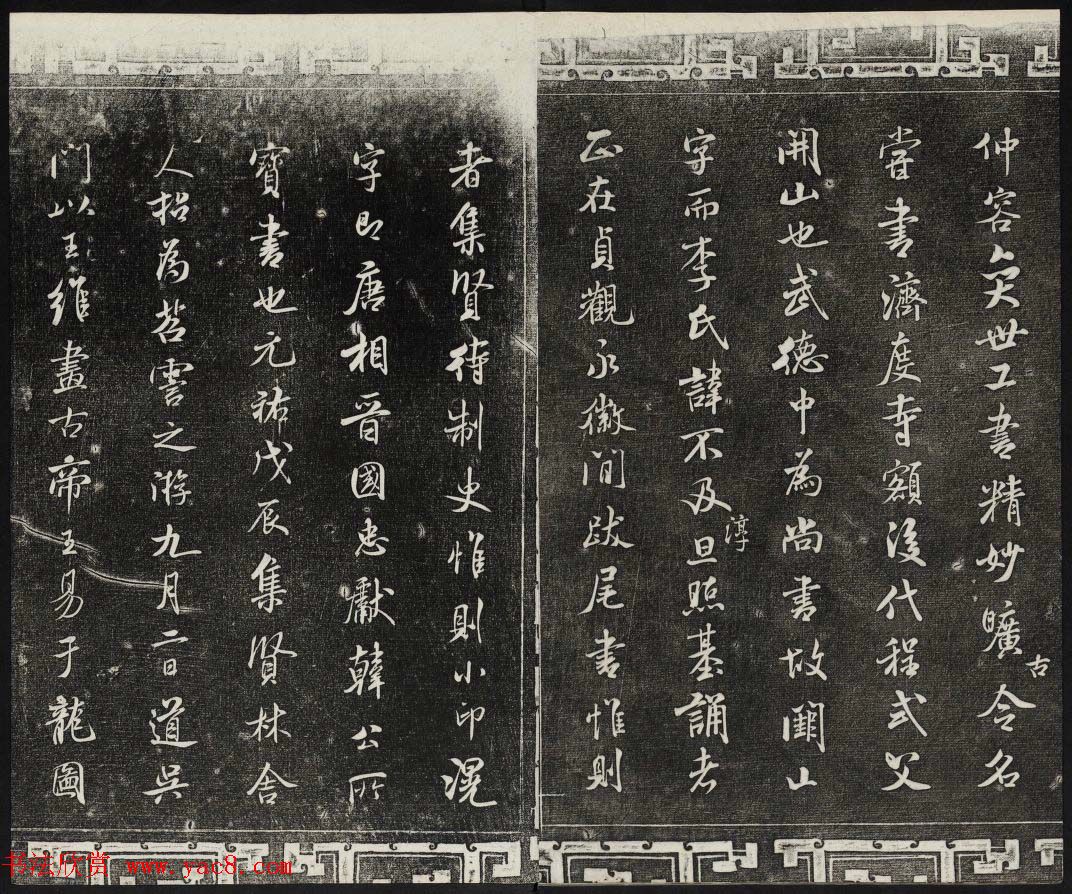 仲容奕世工書精妙曠古令名
嘗書濟度寺額後代程式父
開山也武德中為尚書故闕山
字而李氏諱不及淳旦照基誦者
正在貞觀永徽間跋尾書惟則
者集賢待制史惟則小印滉
字即唐相晉國忠獻韓公所
寶書也元祐戊辰集賢林舍
人招為苕霅之游九月二日道吳
門以王維畫古帝王易于龍圖
书法欣赏 www.yac8.com